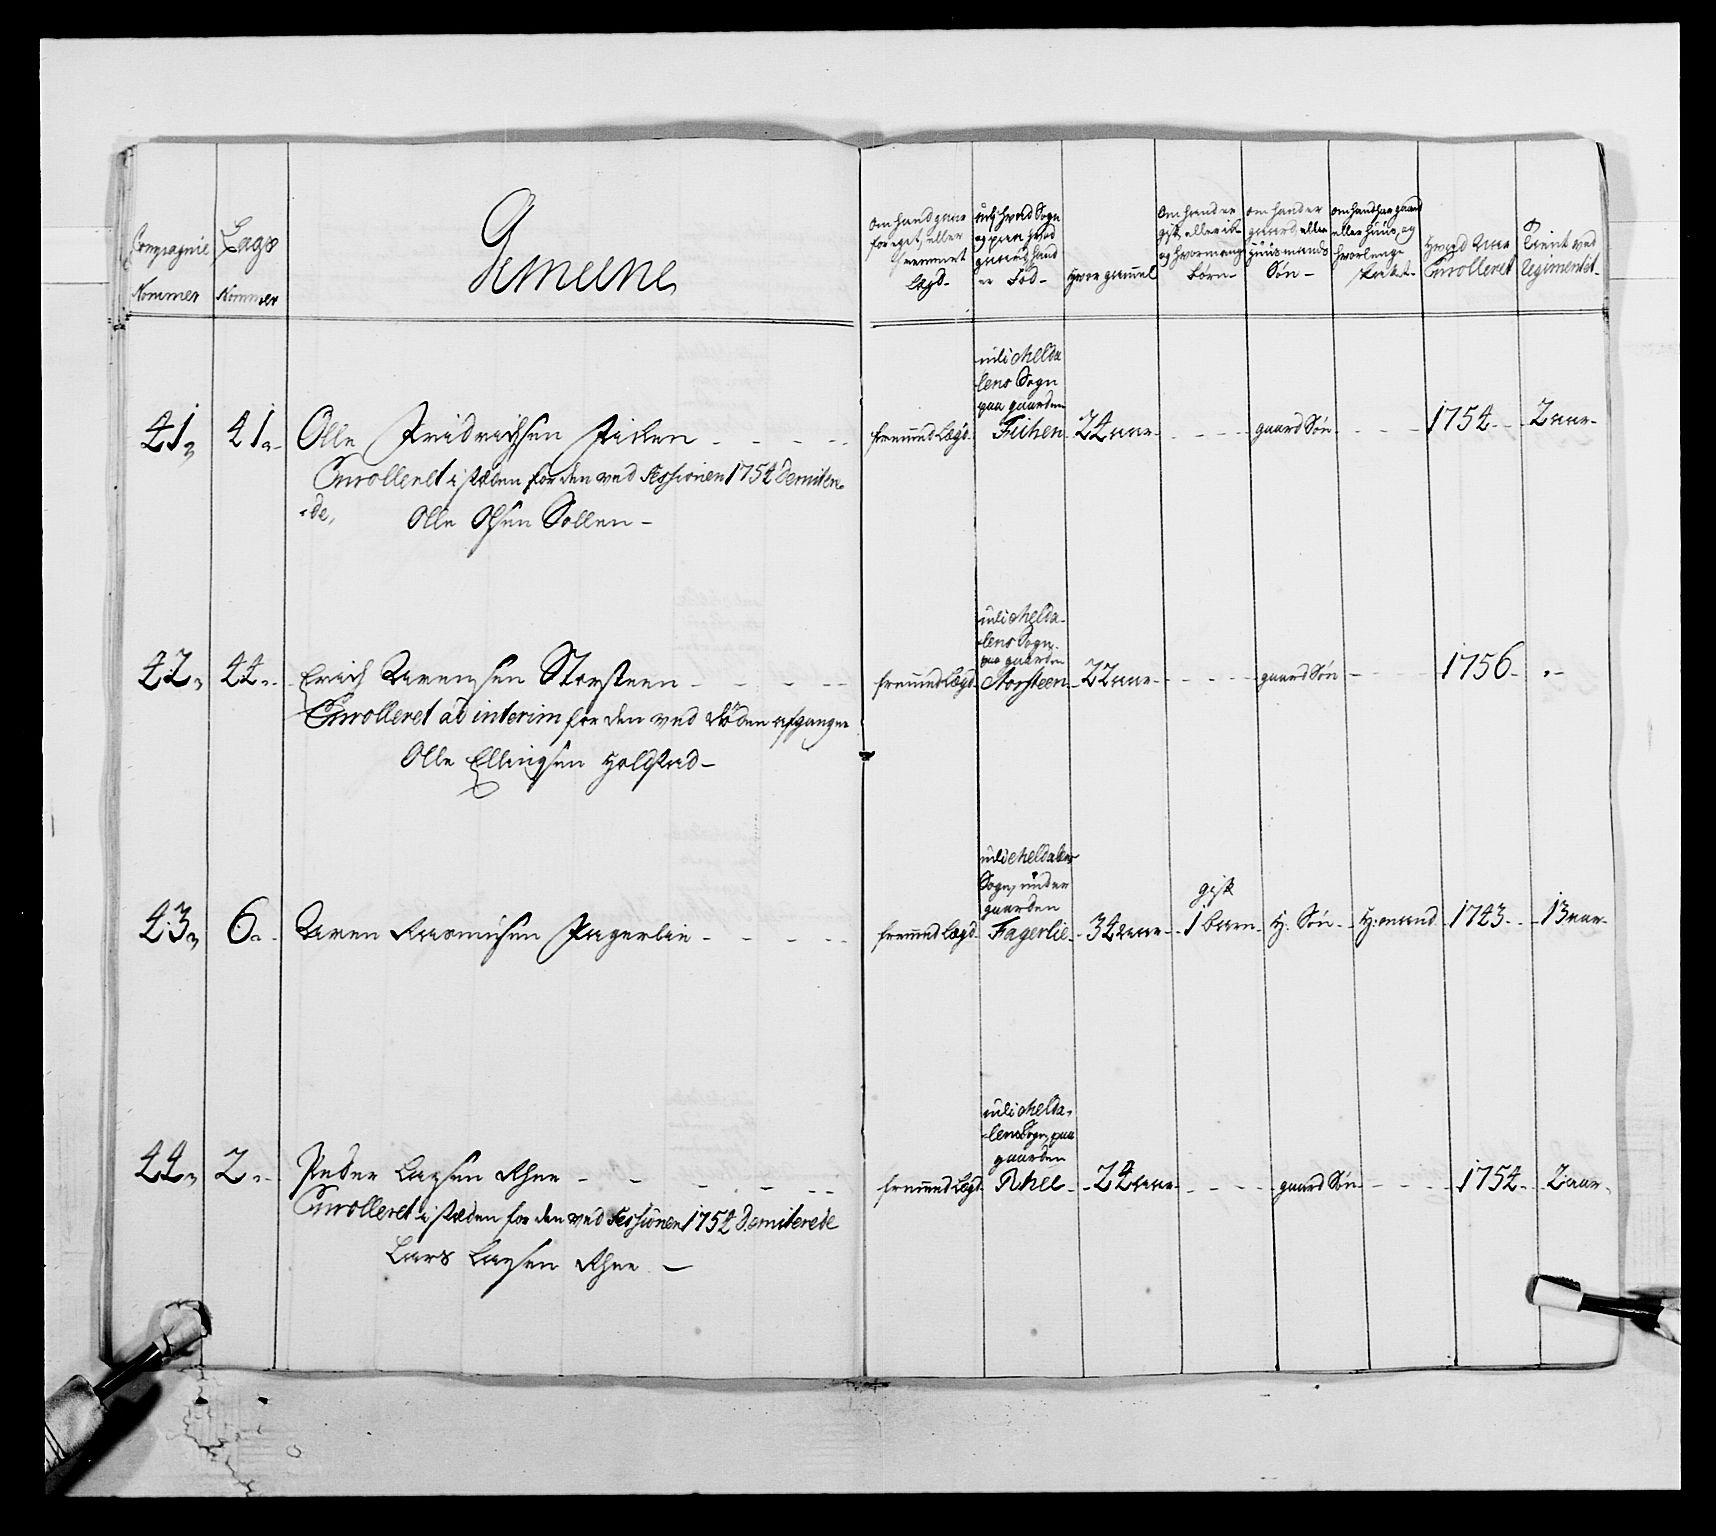 Compagnie Nommer
Lægs Nommer
Gemeene
Om hand gaar for eget, eller fremmet Lægd-
Udj hvad Sogn og paa hvad gaard hand er Fød-
Hvor gammel
Om hand er gift, eller ik og hvor mange børn-
om hand er gaard, eller Huusmands Søn-
om hand har gaard eller Huus, og hvor lenge
Hvad Aar Enrolleret
Tient ved Regimentet-
41, 41.- Olle Fridrichsen Ficken - - - - -
Enrolleret i stæden for den ved Sessionen 1754 demiter-
-de, Olle Olsen Sollen-
fremmed Lægd
udi Melda
lens Sogn
paa gaarden
Fichen- 24 aar- - - - gaard Søn- - - - 1754- - 2 aar-
42, 44.- Erich Arensen Storsteen - - - - -
Enrolleret ad interim for den ved Døden afgangne
Olle Ellingsen Holstad-
fremmed Lægd-
udi Melda-
-lens Sogn-
paa gaarden
Storsteen- 22 aar- - - - gaard Søn - - - 1756- -
43, 6.- Aren Rasmusen Fagerlie - - - - -
fremmed Lægd-
udi Meldalens
Sogn, under
gaarden
Fagerlie- 34 aar- gift
1 barn- H: Søn- H:mand- 1743- - 13 aar-
44, 2.- Peder Larsen Rhee - - - - -
Enrolleret i stæden for den ved Sessionen 1754 demiterede
Lars Larsen Rhee -
fremmed Lægd-
udi Melda-
-lens Sogn, paa
gaarden
Rhee- 24 aar- - - - gaard Søn- - - - 1754- 2 aar-